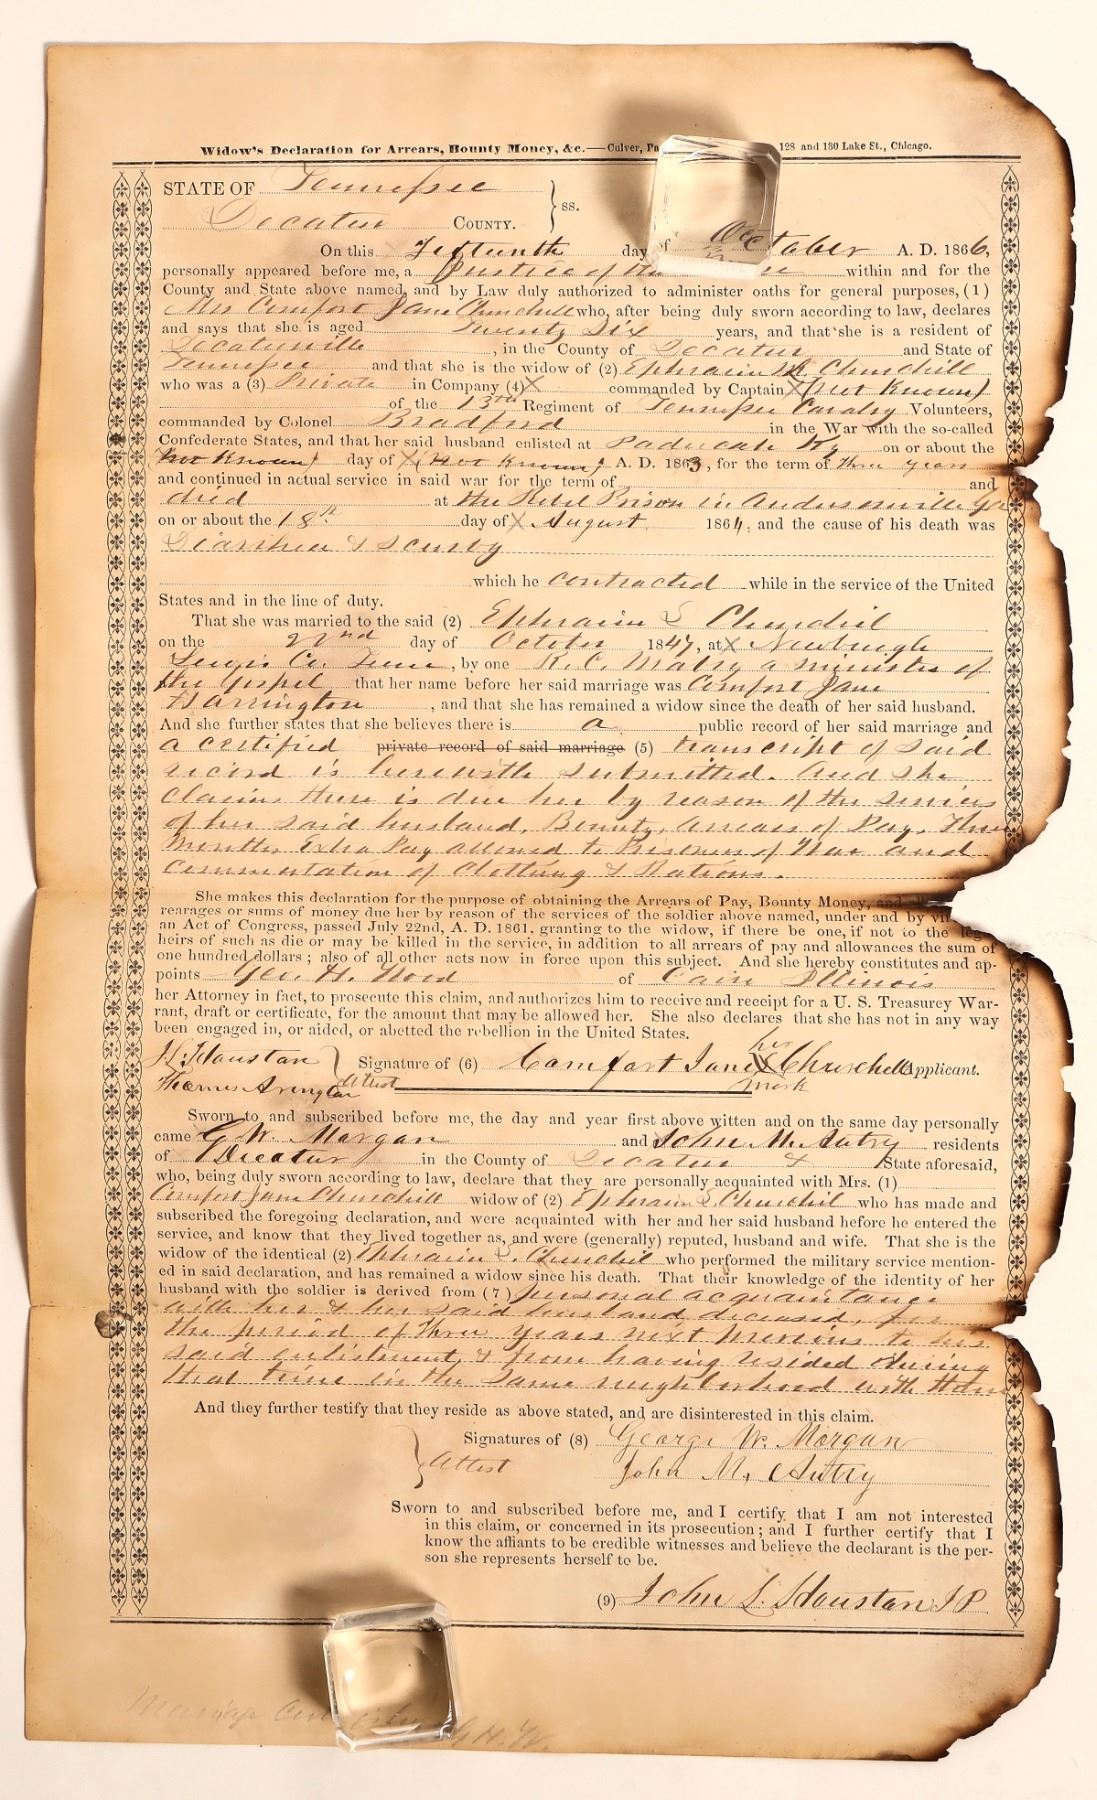 Widow's Declaration for Arrears, Bounty Money, &c.—Culver, Pa 128 and 130 Lake St., Chicago.
STATE OF Tennessee
Decatur COUNTY. } ss.
On this Fifteenth day of October A. D. 1866,
personally appeared before me, a Justice of the within and for the
County and State above named, and by Law duly authorized to administer oaths for general purposes, (1)
Mrs Comfort Jane Churchill who, after being duly sworn according to law, declares
and says that she is aged Twenty Six years, and that she is a resident of
Decaturville, in the County of Decatur and State of
Tennessee and that she is the widow of (2) Ephraim Churchill
who was a (3) Private in Company (4) X commanded by Captain X (Not Known)
of the 13th Regiment of Tennessee Cavalry Volunteers,
commanded by Colonel Bradford in the War with the so-called
Confederate States, and that her said husband enlisted at Paducah Ky on or about the
(Not Known) day of X (Not Known) A. D. 1863, for the term of three years
and continued in actual service in said war for the term of and
died at the Rebel Prison in Andersonville Ga
on or about the 18th day of X August 1864, and the cause of his death was
Diarrhea & Scurvy
which he contracted while in the service of the United
States and in the line of duty.
That she was married to the said (2) Ephraim S Churchil
on the 22nd day of October 1847, at X Newburgh
Lewis Co. Tenn, by one R. C. Mabry a minister of
the Gospel that her name before her said marriage was Comfort Jane
Harrington, and that she has remained a widow since the death of her said husband.
And she further states that she believes there is a public record of her said marriage and
a certified private record of said marriage (5) transcript of said
record is herewith submitted. And she
claims there is due her by reason of the services
of her said husband, Bounty, Arrears of Pay, Three
Months Extra Pay allowed to Prisoners of War and
commutation of Clothing & Rations.
She makes this declaration for the purpose of obtaining the Arrears of Pay, Bounty Money, and
rearages or sums of money due her by reason of the services of the soldier above named, under and by vi
an Act of Congress, passed July 22nd, A. D. 1861, granting to the widow, if there be one, if not to the leg
heirs of such as die or may be killed in the service, in addition to all arrears of pay and allowances the sum of
one hundred dollars; also of all other acts now in force upon this subject. And she hereby constitutes and ap-
points Geo. H. Wood of Cairo Illinois
her Attorney in fact, to prosecute this claim, and authorizes him to receive and receipt for a U. S. Treasurey War-
rant, draft or certificate, for the amount that may be allowed her. She also declares that she has not in any way
been engaged in, or aided, or abetted the rebellion in the United States.
J L Houstan } Signature of (6) Comfort Jane her X mark Churchell Applicant.
Thomas Arington Attest
Sworn to and subscribed before me, the day and year first above witten and on the same day personally
came G W. Morgan and John M. Autry residents
of Decatur in the County of Decatur & State aforesaid,
who, being duly sworn according to law, declare that they are personally acquainted with Mrs. (1)
Comfort Jane Churchill widow of (2) Ephraim S. Churchil who has made and
subscribed the foregoing declaration, and were acquainted with her and her said husband before he entered the
service, and know that they lived together as, and were (generally) reputed, husband and wife. That she is the
widow of the identical (2) Ephraim S. Churchil who performed the military service mention-
ed in said declaration, and has remained a widow since his death. That their knowledge of the identity of her
husband with the soldier is derived from (7) personal acquaintance
with her & her said husband deceased, for
the period of three years next previous to his
said enlistment, & from having resided during
that time in the same neighborhood with them
And they further testify that they reside as above stated, and are disinterested in this claim.
Signatures of (8) George W. Morgan
} Attest John M. Autry
Sworn to and subscribed before me, and I certify that I am not interested
in this claim, or concerned in its prosecution; and I further certify that I
know the affiants to be credible witnesses and believe the declarant is the per-
son she represents herself to be.
(9) John L. Houstan J P
G. H. W.